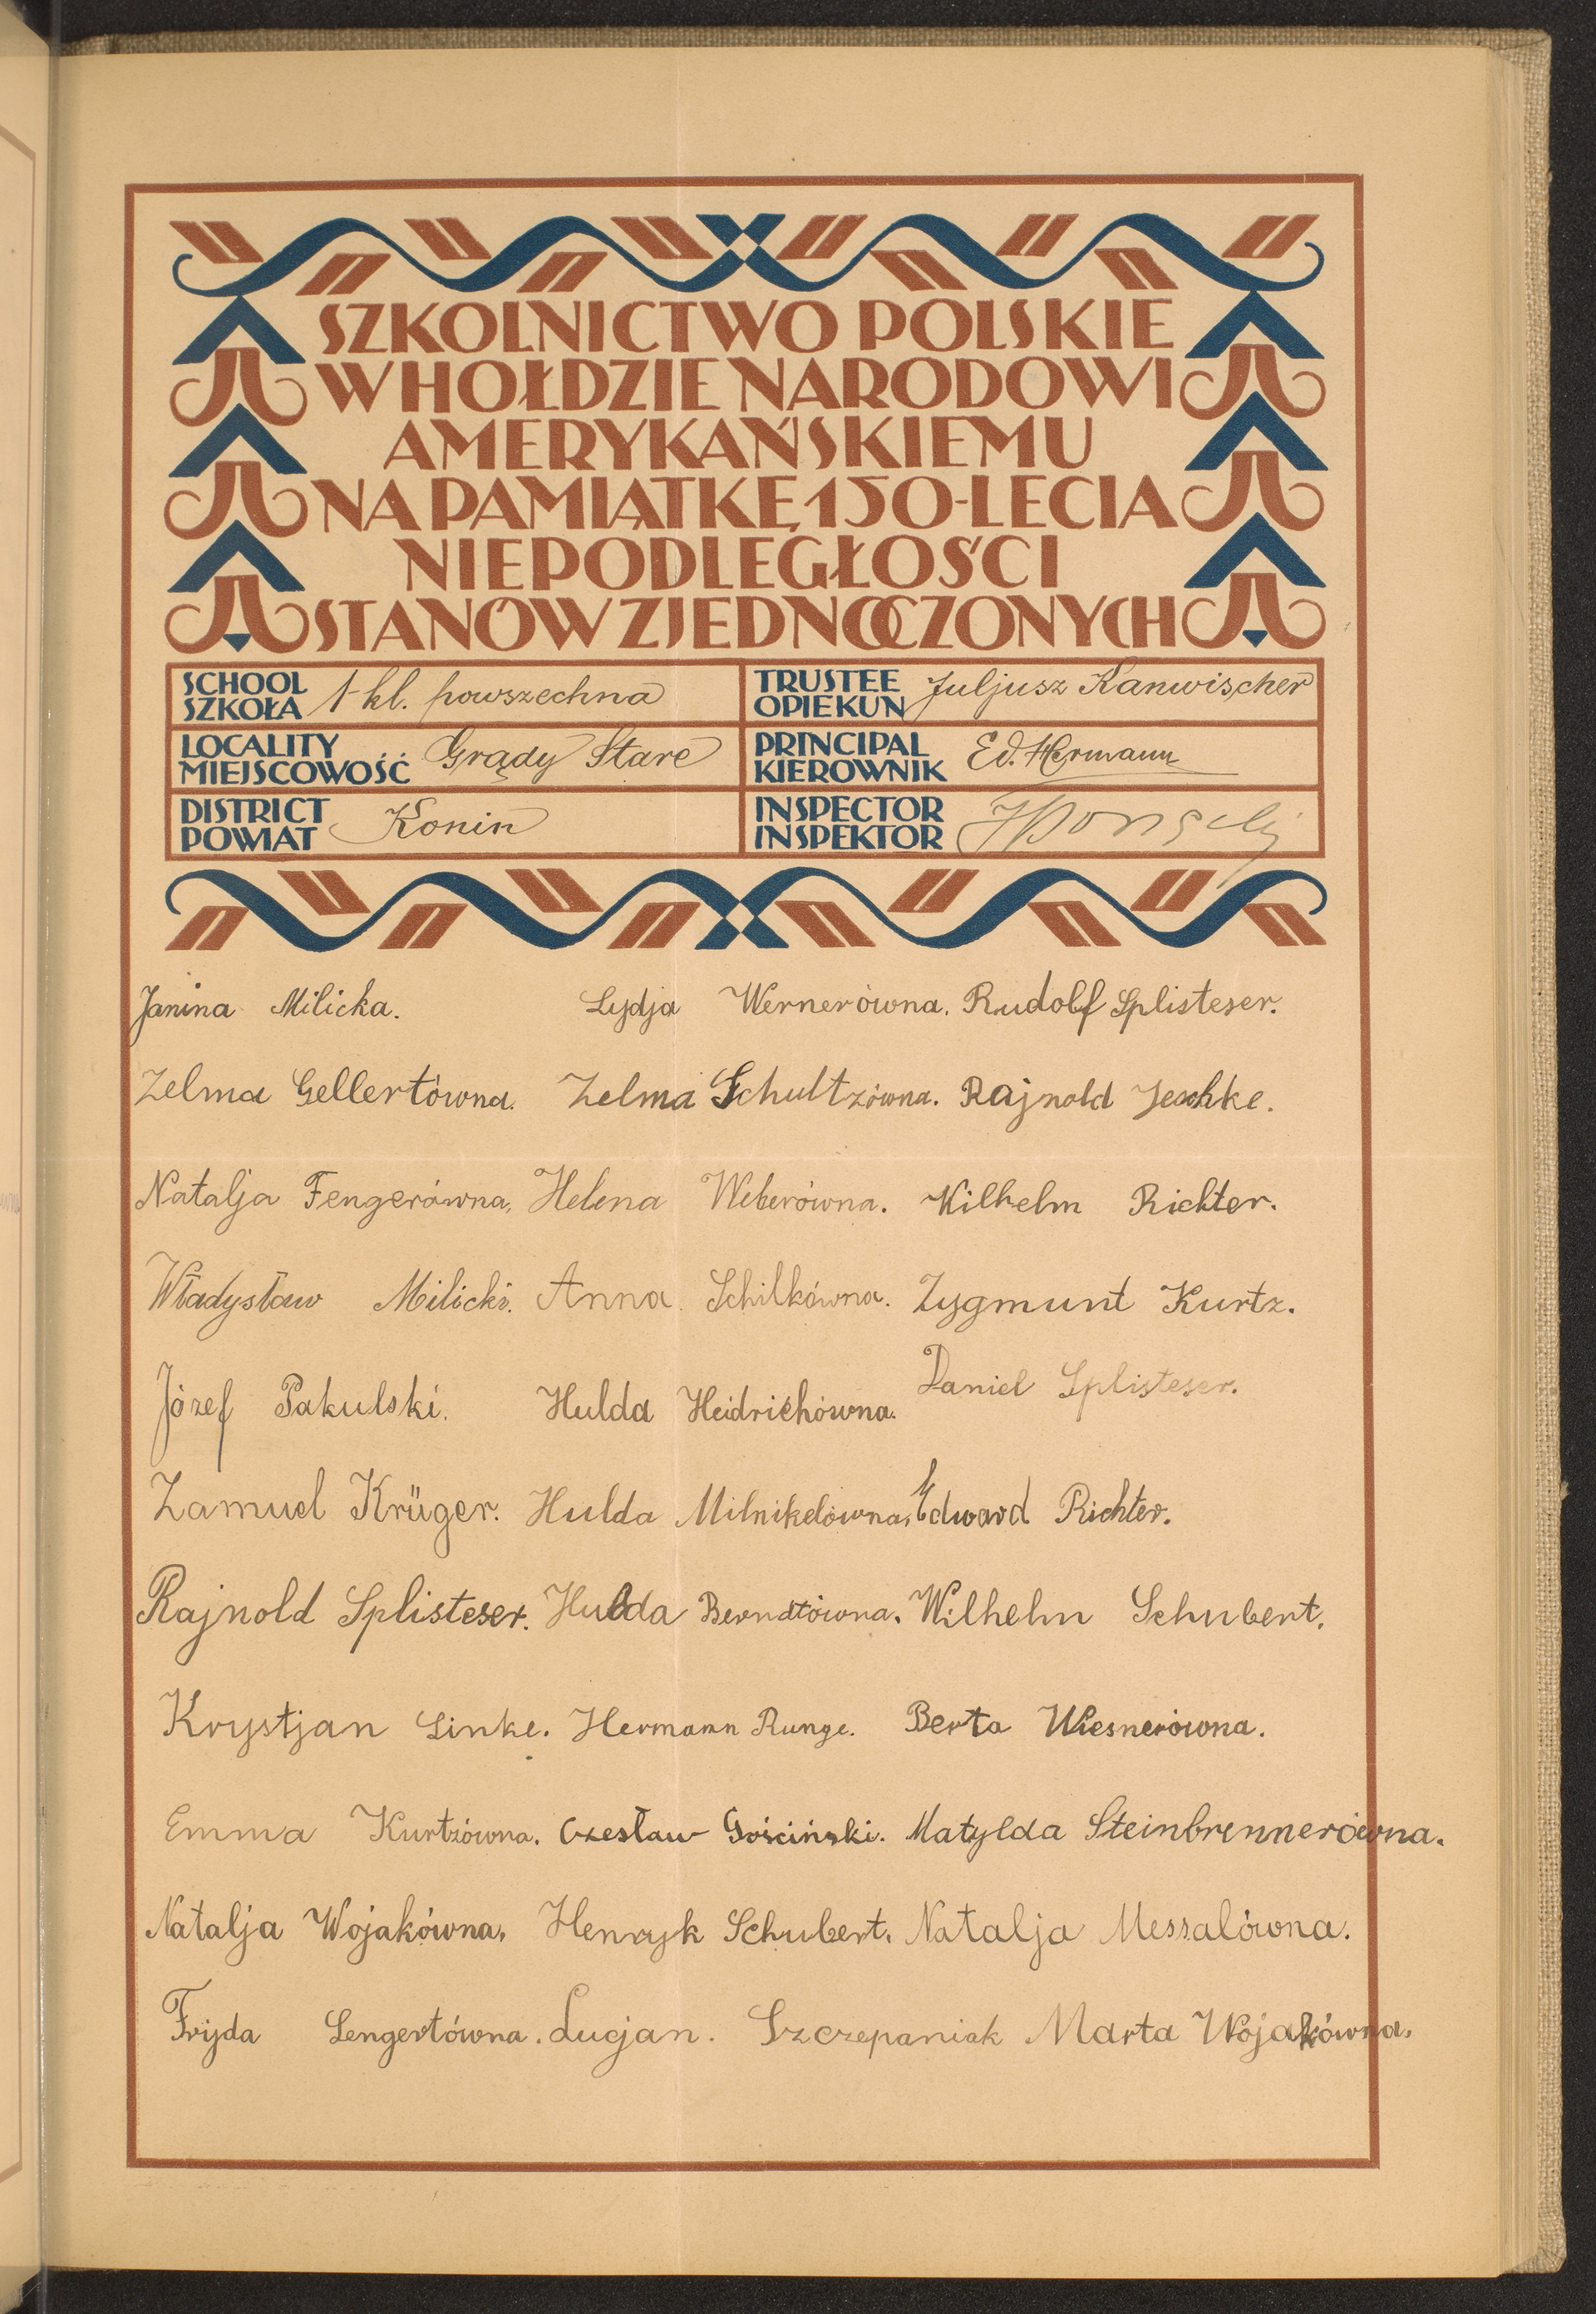 SZKOLNICTWO POLSKIE
W HOŁDZIE NARODOWI
AMERYKAŃSKIEMU
NA PAMIĄTKĘ 150-LECIA
NIEPODLEGŁOŚCI
STANÓW ZJEDNOCZONYCH
SCHOOL
SZKOŁA 1-kl. powszechna
TRUSTEE
OPIEKUN Juljusz Kanwischer
LOCALITY
MIEJSCOWOŚĆ Grądy Stare
PRINCIPAL
KIEROWNIK Ed. Hermann
DISTRICT
POWIAT Konin
INSPECTOR
INSPEKTOR
Janina Milicka. Lydja Wernerówna. Rudolf Splisteser.
Zelma Gellertówna. Zelma Schultzówna. Rajnold Jeschke.
Natalja Fengerówna, Helena Weberówna. Wilhelm Richter.
Władysław Milicki. Anna Schilkówna. Zygmunt Kurtz.
Józef Pakulski. Hulda Heidrichówna. Daniel Splisteser.
Zamuel Krüger. Hulda Milnikelówna, Edward Richter.
Rajnold Splisteser. Hulda Berndtówna. Wilhelm Schubert.
Krystjan Linke. Hermann Runge. Berta Wiesnerówna.
Emma Kurtzówna. Czesław Gościński. Matylda Steinbrennerówna.
Natalja Wojakówna, Henryk Schubert, Natalja Messalówna.
Fryda Lengertówna. Lucjan. Szczepaniak Marta Wojakówna.